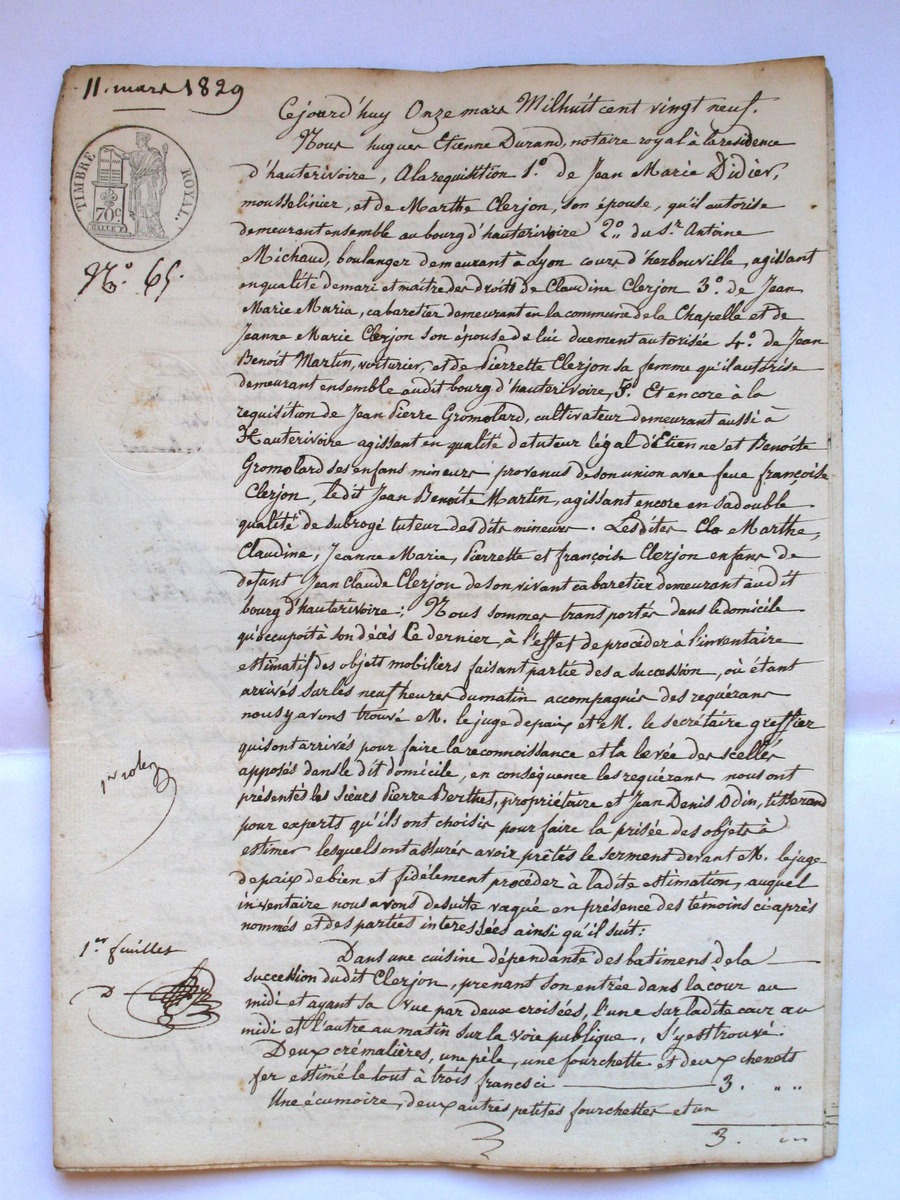 11. mars 1829
TIMBRE ROYAL.
70c
N.o 65.
Cejourd'huy Onze mars Milhuit cent vingt neuf.
Nous hugues Etienne Durand, notaire royal à la residence
d'hauterivoire, A la requisition 1.o de Jean Marie Didier,
mousselinier, et de Marthe Clerjon, son épouse, qu'il autorise
demeurant ensemble au bourg d'hauterivoire 2.o du S.r Antoine
Michaud, boulanger demeurant à Lyon cours d'herbouville, agissant
en qualité de mari et maitre des droits de Claudine Clerjon 3.o de Jean
Marie Maria, cabaretier demeurant en la commune de la Chapelle et de
Jeanne Marie Clerjon son épouse de lui duement autorisée 4.o de Jean
Benoit Martin, voiturier, et de Pierrette Clerjon sa femme qu'il autorise
demeurant ensemble audit bourg d'hauterivoire, 5.o Et encore à la
requisition de Jean Pierre Gromolard, cultivateur demeurant aussi à
Hauterivoire agissant en qualité de tuteur légal d'Etienne et Benoite
Gromolard ses enfans mineurs provenus de son union avec feue françoise
Clerjon, le dit Jean Benoite Martin, agissant encore en sa double
qualité de subrogé tuteur des dits mineurs. Lesdites Cle Marthe,
Claudine, Jeanne Marie, Pierrette et françoise Clerjon enfans de
defunt Jean Claude Clerjon de son vivant cabaretier demeurant audit
bourg d'hauterivoire; Nous sommes transportés dans le domicile
qu'occupoit à son décès Le dernier, à l'effet de procéder à l'inventaire
estimatif des objets mobiliers faisant partie de sa succession, où étant
arrivés sur les neuf heures du matin accompagnés des requérans
nous y avons trouvé M. le juge de paix et M. le secrétaire greffier
qui sont arrivés pour faire la reconnoissance et la levée des scellés
apposés dans le dit domicile, en conséquence les requérans, nous ont
présentés les Sieurs Pierre Berthet, propriétaire et Jean Denis Odin, tisserand
pour experts qu'ils ont choisis pour faire la prisée des objets à
estimer lesquels ont assurés avoir prêtés le serment devant M. le juge
de paix de bien et fidélement procéder à ladite estimation, auquel
inventaire nous avons de suite vaqué en présence des témoins ci-après
nommés et des parties interessées ainsi qu'il suit:
1.er rolle
1.er feuillet
D
Dans une cuisine dépendante des batimens de la
succession dudit Clerjon, prenant son entrée dans la cour au
midi et ayant sa vue par deux croisées, l'une sur ladite cour au
midi et l'autre au matin sur la voie publique, s'y est trouvé:
Deux crémalières, une pêle, une fourchette et deux chenets
fer estimé le tout à trois francs ci 3. " "
Une écumoire, deux autres petites fourchettes et un
3. " "